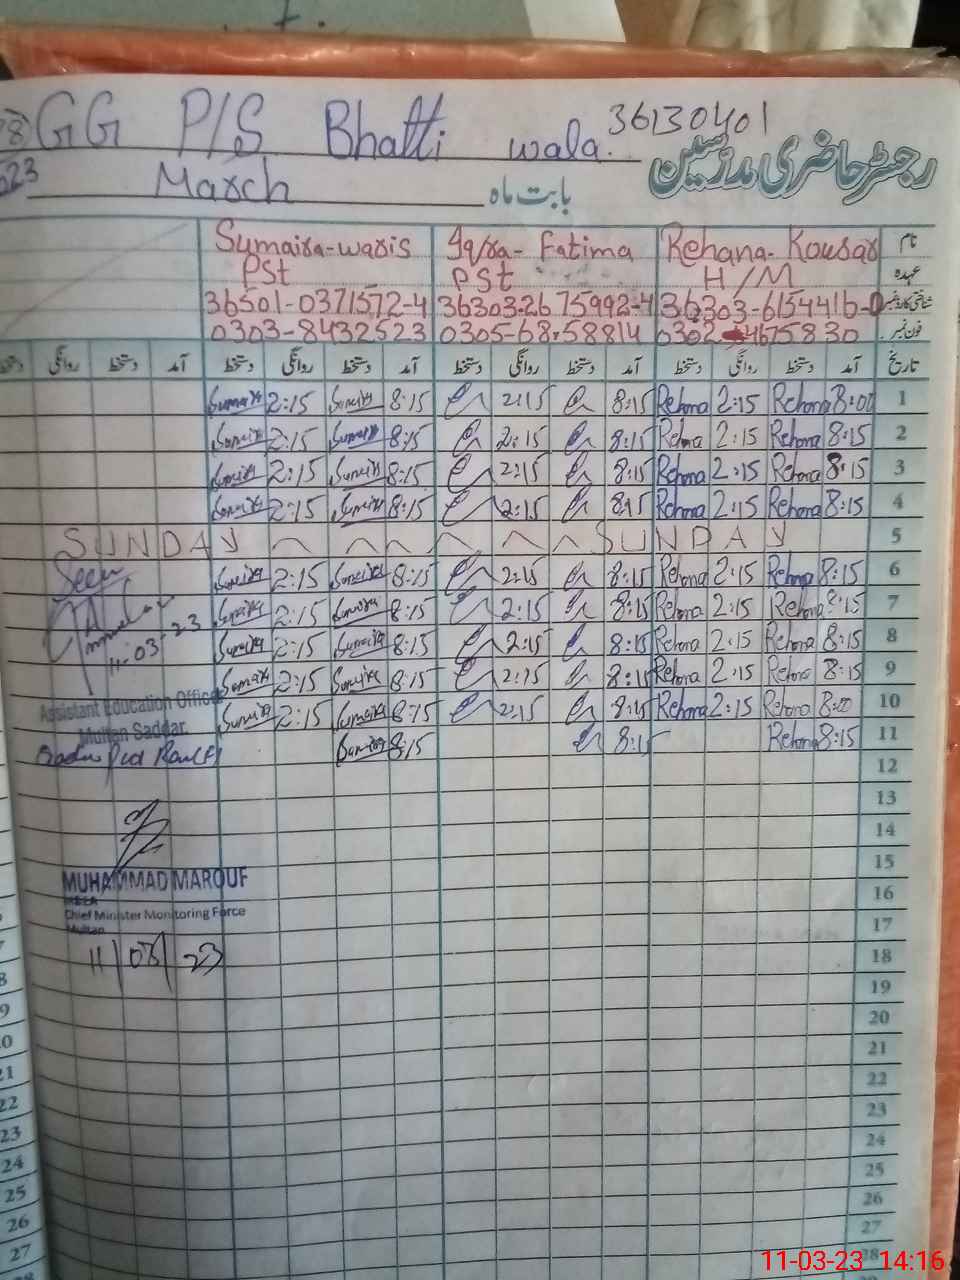 GG P/S Bhatti wala. 36130401
رجسٹر حاضری مدرسین
March بابت ماہ
Sumaira-waris Iqra-Fatima Rehana-Kousar نام
PSt PSt H/M عہدہ
36501-0371572-4 36303-2675992-4 36303-6154416-0 شناختی کارڈ نمبر
0303-8432523 0305-6858814 0302-4675830 فون نمبر
دستخط روانگی دستخط آمد دستخط روانگی دستخط آمد دستخط روانگی دستخط آمد دستخط روانگی دستخط آمد تاریخ
Sumaira 2:15 Sumaira 8:15 2:15 8:15 Rehana 2:15 Rehana 8:00 1
Sumaira 2:15 Sumaira 8:15 2:15 8:15 Rehana 2:15 Rehana 8:15 2
Sumaira 2:15 Sumaira 8:15 2:15 8:15 Rehana 2:15 Rehana 8:15 3
Sumaira 2:15 Sumaira 8:15 2:15 8:15 Rehana 2:15 Rehana 8:15 4
SUNDAY SUNDAY 5
Seen Sumaira 2:15 Sumaira 8:15 2:15 8:15 Rehana 2:15 Rehana 8:15 6
Sumaira 2:15 Sumaira 8:15 2:15 8:15 Rehana 2:15 Rehana 8:15 7
11-03-23 Sumaira 2:15 Sumaira 8:15 2:15 8:15 Rehana 2:15 Rehana 8:15 8
Sumaira 2:15 Sumaira 8:15 2:15 8:15 Rehana 2:15 Rehana 8:15 9
Assistant Education Officer Sumaira 2:15 Sumaira 8:15 2:15 8:15 Rehana 2:15 Rehana 8:00 10
Multan Saddar.
Sumaira 8:15 8:15 Rehana 8:15 11
12
13
14
15
MUHAMMAD MAROUF 16
Chief Minister Monitoring Force 17
Multan
11/03/23 18
19
20
21
22
23
24
25
26
27
28
11-03-23 14:16